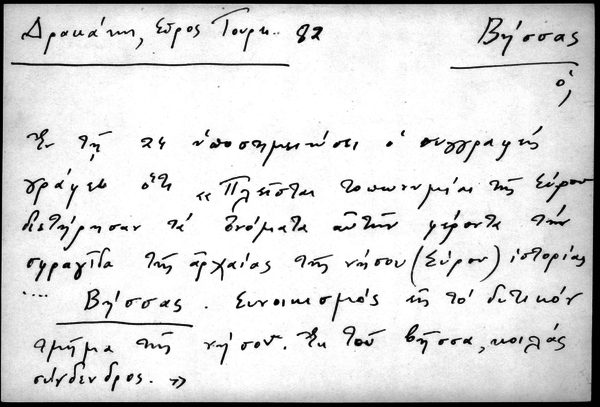 Δρακάκη, Σῦρος Τουρκ.. 82
Βήσσας
ὁ,
Ἐν τῇ 24 ὑποσημειώσει ὁ συγγραφεὺς
γράφει ὅτι «Πλεῖσται τοπωνυμίαι τῆς Σύρου
διετήρησαν τὰ ὀνόματα αὐτῶν φέροντα τὴν
σφραγῖδα τῆς ἀρχαίας τῆς νήσου (Σύρου) ἱστορίας
.... Βήσσας. Συνοικισμὸς εἰς τὸ δυτικὸν
τμῆμα τῆς νήσου. Ἐκ τοῦ βῆσσα, κοιλὰς
σύνδενδρος. »